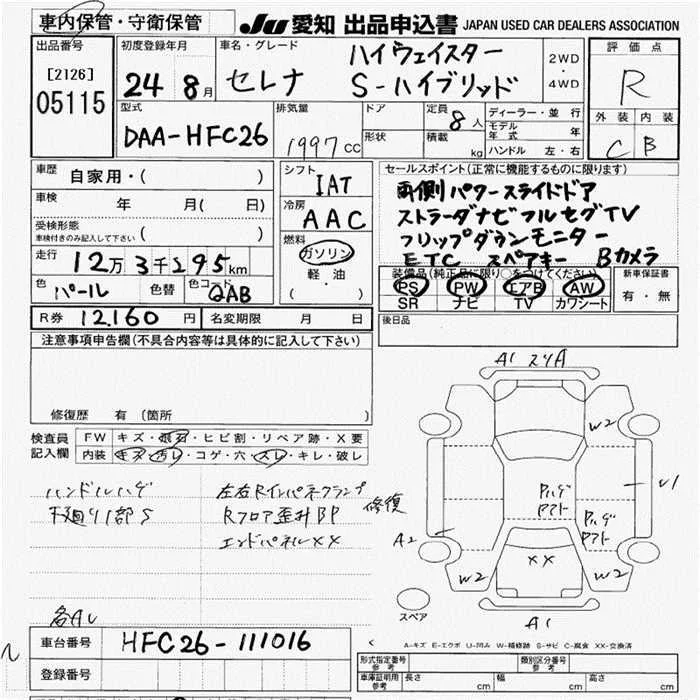 車内保管・守衛保管
JU 愛知 出品申込書 JAPAN USED CAR DEALERS ASSOCIATION
出品番号
[2126]
05115
初度登録年月
24 8月
車名・グレード
ハイウェイスター
セレナ S-ハイブリッド
2WD
・
4WD
評価点
R
外装 内装
C B
型式
DAA-HFC26
排気量
1997 CC
ドア
形状
定員 8人
積載 kg
ディーラー・並行
モデル年式 年
ハンドル 左・右
車歴 自家用・( )
車検 年 月( 日)
受検形態
車検付きのみ記入して下さい ( )
走行 12万3千295km
色 パール 色替 色コード QAB
R券 12,160 円 名変期限 月 日
シフト
IAT
冷房
AAC
燃料
ガソリン
軽・油
( )
セールスポイント(正常に機能するものに限ります)
両側パワースライドドア
ストラーダナビフルセグTV
フリップダウンモニター
ETC スペアキー Bカメラ
装備品(純正品に限り○をつけてください)
PS PW エアB AW
SR ナビ TV カワシート
新車保証書
有・無
後日品
注意事項申告欄(不具合内容等は具体的に記入して下さい)
修復歴 有(箇所 )
検査員記入欄
FW キズ・飛石・ヒビ割・リペア跡・X要
内装 キズ・汚レ・コゲ・穴・スレ・キレ・破レ
ハンドルハゲ
下廻り1部S
左右Rインパネクランプ 修復
Rフロア歪ミBP
エンドパネルXX
各AL
A1 スリA
W2
W2
U1
A2
Pハゲ
アアト
Pハゲ
アアト
XX
W2
W2
A1
スペア
A-キズ E-エクボ U-凹み W-補修跡 S-サビ C-腐食 XX-交換済
車台番号 HFC26-111016
登録番号
形式指定番号
参考
類別区分番号
参考
車庫証明用
参考
長さ cm 幅 cm 高さ cm